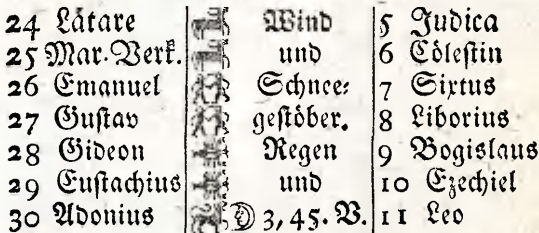 24 Lätare Wind 5 Judica
25 Mar. Verk. und 6 Cölestin
26 Emanuel Schnee- 7 Sixtus
27 Gustav gestöber. 8 Liborius
28 Gideon Regen 9 Bogislaus
29 Eustachius und 10 Ezechiel
30 Adonius 3, 45. V. 11 Leo